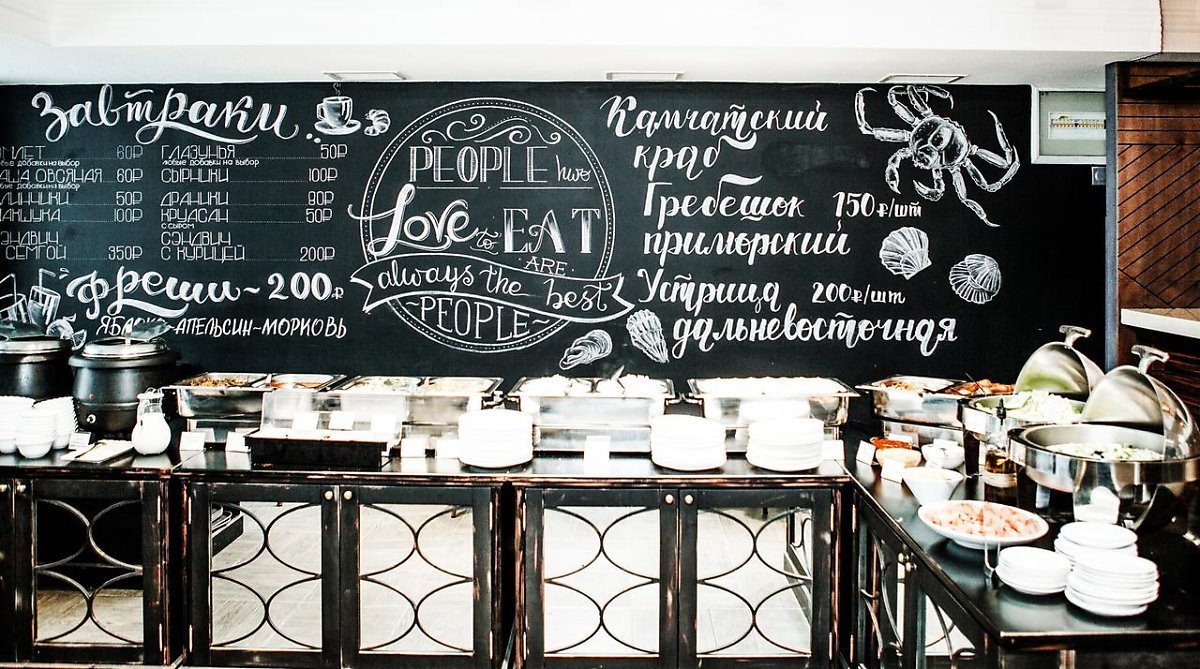 Завтраки
60₽
любые добавки на выбор
ОВСЯНАЯ 60₽
любые добавки на выбор
50₽
100₽
СЭНДВИЧ
С СЕМГОЙ 350₽
ГЛАЗУНЬЯ 50₽
любые добавки на выбор
СЫРНИКИ 100₽
ДРАНИКИ 90₽
КРУАСАН 50₽
С СЫРОМ
СЭНДВИЧ
С КУРИЦЕЙ 200₽
Фреши ~ 200₽
ЯБЛОКО~АПЕЛЬСИН~МОРКОВЬ
PEOPLE who
Love to EAT
ARE
always the best
~PEOPLE~
Камчатский
краб
Гребешок 150₽/шт
приморский
Устрица 200₽/шт
дальневосточная